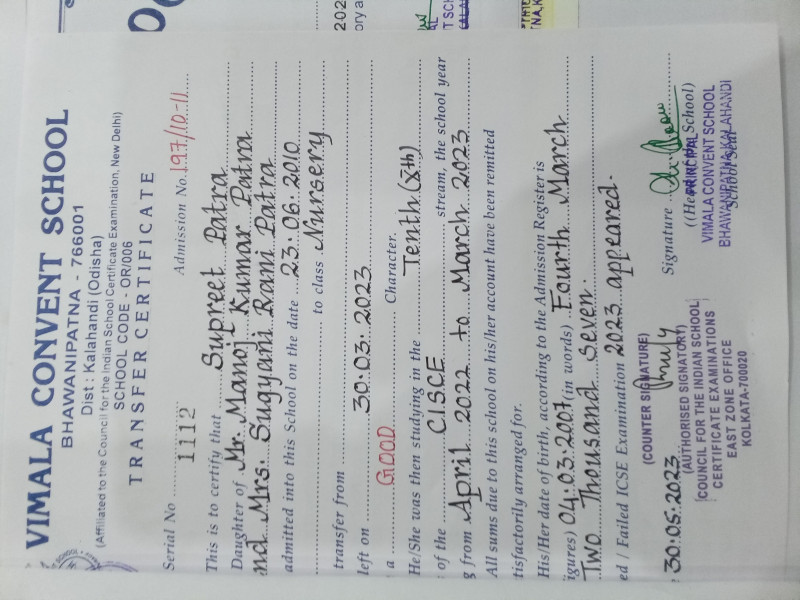 VIMALA CONVENT SCHOOL
BHAWANIPATNA - 766001
Dist : Kalahandi (Odisha)
(Affiliated to the Council for the Indian School Certificate Examination, New Delhi)
SCHOOL CODE - OR/006
TRANSFER CERTIFICATE
Serial No 1112 Admission No. 197/10-11
This is to certify that Supreet Patra
Daughter of Mr. Manoj Kumar Patra
nd Mrs. Sugyani Rani Patra
admitted into this School on the date 23.06.2010
to class Nursery
transfer from
left on 30.03.2023
a GOOD Character.
He/She was then studying in the Tenth (Xth)
of the C.I.S.C.E stream, the school year
g from April 2022 to March 2023
All sums due to this school on his/her account have been remitted
tisfactorily arranged for.
His/Her date of birth, according to the Admission Register is
igures) 04.03.2007 (in words) Fourth March
Two Thousand Seven.
ed / Failed ICSE Examination 2023 appeared.
(COUNTER SIGNATURE)
30.05.2023
Signature
(AUTHORISED SIGNATORY)
COUNCIL FOR THE INDIAN SCHOOL
CERTIFICATE EXAMINATIONS
EAST ZONE OFFICE
KOLKATA-700020
PRINCIPAL
VIMALA CONVENT SCHOOL
BHAWANIPATNA, KALAHANDI
School Seal